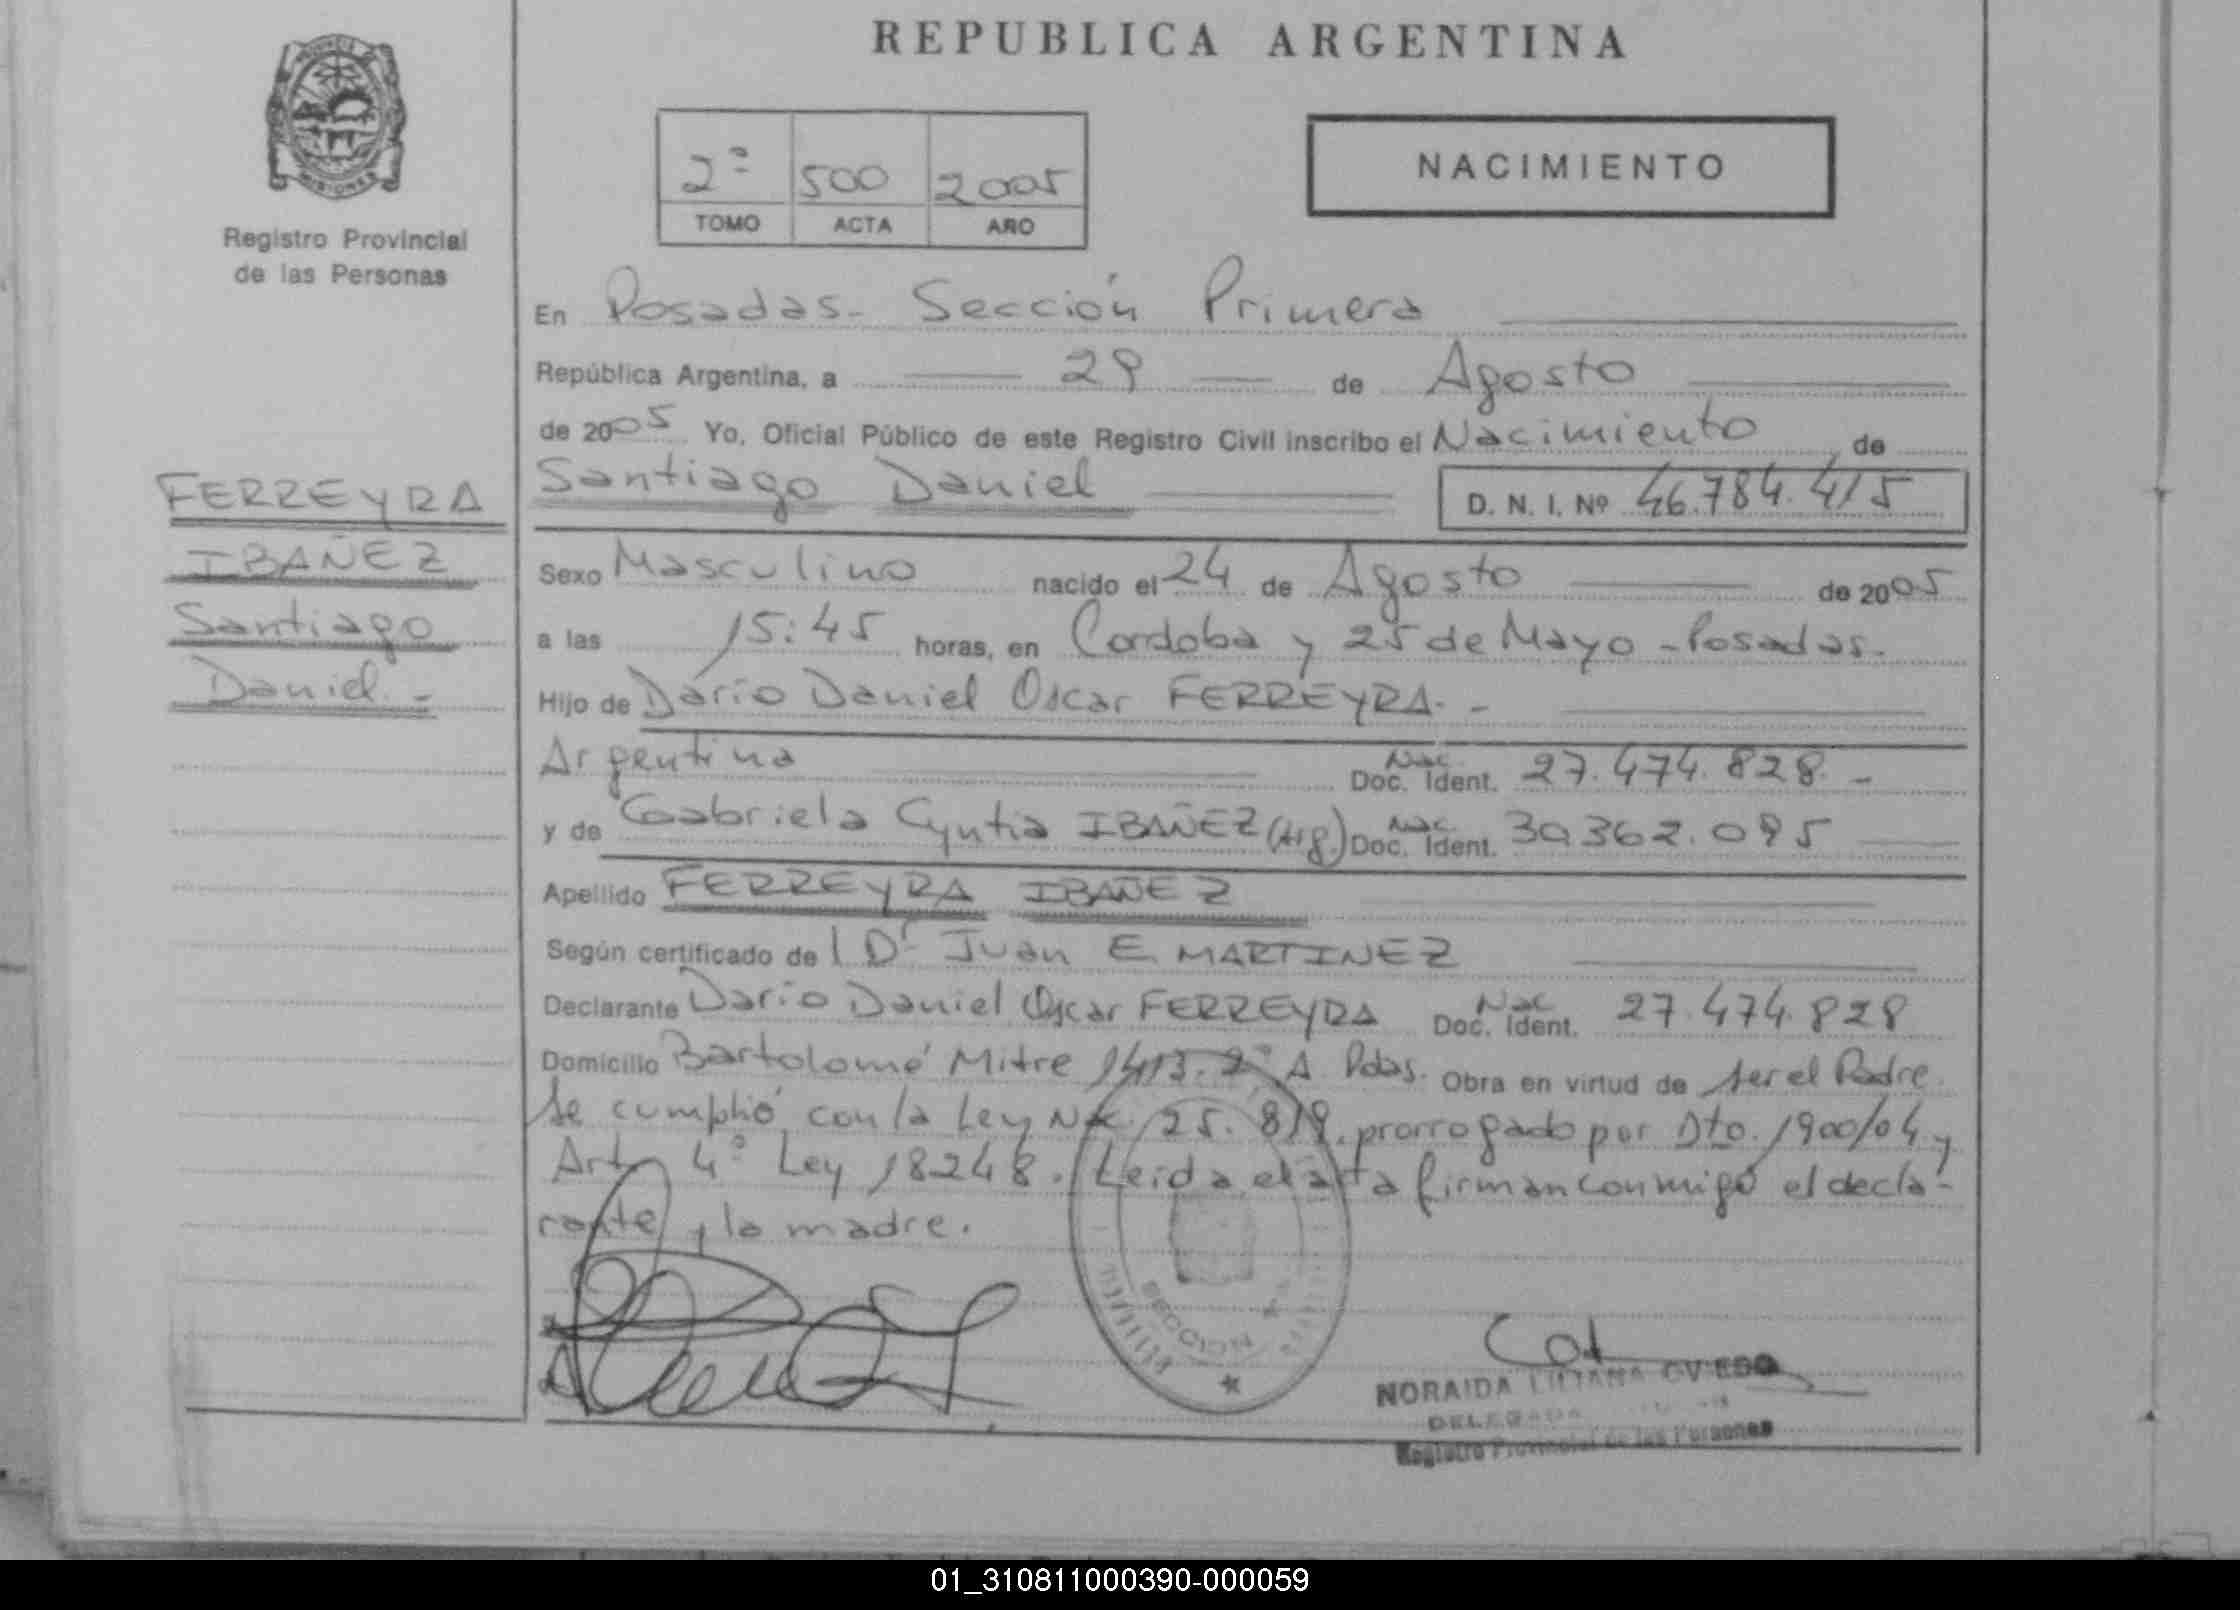 REPUBLICA ARGENTINA
MISIONES
Registro Provincial
de las Personas
2º 500 2005
TOMO ACTA AÑO
NACIMIENTO
En Posadas- Sección Primera
República Argentina, a 29 de Agosto
de 2005 Yo, Oficial Público de este Registro Civil inscribo el Nacimiento de
Santiago Daniel D. N. I. Nº 46.784.415
FERREYRA
IBAÑEZ
Santiago
Daniel.-
Sexo Masculino nacido el 24 de Agosto de 2005
a las 15:45 horas, en Cordoba y 25 de Mayo - Posadas.
Hijo de Dario Daniel Oscar FERREYRA.-
Argentina Nac. Doc. Ident. 27.474.828.-
y de Gabriela Cyntia IBAÑEZ (Arg.) Nac. Doc. Ident. 30362.095
Apellido FERREYRA IBAÑEZ
Según certificado de l Dr Juan E. MARTINEZ
Declarante Dario Daniel Oscar FERREYRA Nac Doc. Ident. 27.474.828
Domicilio Bartolomé Mitre 1413. 2º A Pdas. Obra en virtud de ser el Padre.
Se cumplió con la Ley Nac. 25.819, prorrogado por Dto. 1900/04 y
Art. 4º Ley 18248. Leida el acta firman conmigo el decla-
rante y la madre.
SECCION
NORAIDA LILIANA OVIEDO
DELEGADA
Registro Provincial de las Personas
01_310811000390-000059